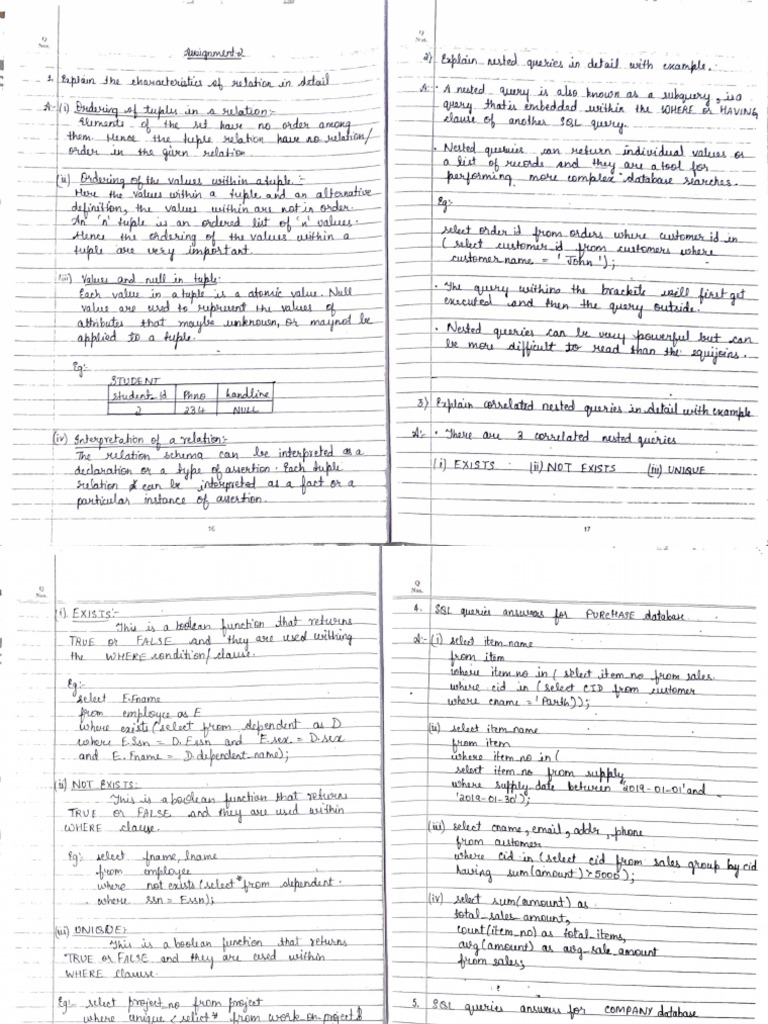 Q
Nos.
Assignment-2
1. Explain the characteristics of relation in detail
A:- (i) Ordering of tuples in a relation:-
Elements of the set have no order among
them. Hence the tuple relation have no relation/
order in the given relation
(ii) Ordering of the values within a tuple:-
Here the values within a tuple and an alternative
definition, the values within are not in order.
An 'n' tuple is an ordered list of 'n' values.
Hence the ordering of the values within a
tuple are very important.
(iii) Values and null in tuple:
Each value in a tuple is a atomic value. Null
value are used to represent the values of
attributes that maybe unknown, or maynot be
applied to a tuple.
Eg:-
STUDENT
student_id Phno handline
2 234 NULL
(iv) Interpretation of a relation:-
The relation schema can be interpreted as a
declaration or a type of assertion. Each tuple
relation can be interpreted as a fact or a
particular instance of assertion.
16
Q
Nos.
2) Explain nested queries in detail with example.
A:- • A nested query is also known as a subquery, is a
query that is embedded within the WHERE or HAVING
clause of another SQL query.
• Nested queries can return individual values or
a list of records and they are a tool for
performing more complex database searches.
Eg:-
select order id from orders where customer id in
( select customer_id from customers where
customer name = 'John');
• The query withins the brackets will first get
executed and then the query outside.
• Nested queries can be very powerful but can
be more difficult to read than the equijoins.
3) Explain correlated nested queries in detail with example
A:- • There are 3 correlated nested queries
(i) EXISTS (ii) NOT EXISTS (iii) UNIQUE
17
Q
Nos.
(i). EXISTS:-
This is a boolean function that returns
TRUE or FALSE and they are used withing
the WHERE condition/clause.
Eg:-
select E.Fname
from employee as E
where exists (select from dependent as D
where E.Ssn = D.Essn and E.sex = D.sex
and E.Fname = D.dependent_name);
(ii) NOT EXISTS:
This is a boolean function that returns
TRUE or FALSE and they are used within
WHERE clause.
Eg:- select fname, lname
from employee
where not exists (select * from dependent
where ssn = Essn);
(iii) UNIQUE:-
This is a boolean function that returns
TRUE or FALSE and they are used within
WHERE clause.
Eg:- select project_no from project
where unique (select * from work_on_project
Q
Nos.
4. SQL queries answers for PURCHASE database
A:- (i) select item_name
from item
where item_no in ( select item_no from sales
where cid in (select CID from customer
where cname = 'Parth'));
(ii) select item_name
from item
where item_no in (
select item_no from supply
where supply_date between '2019-01-01' and
'2019-01-30');
(iii) select cname, email, addr, phone
from customer
where cid in (select cid from sales group by cid
having sum(amount) > 5000');
(iv) select sum(amount) as
total_sales_amount,
count(item_no) as total_items,
avg(amount) as avg_sale_amount
from sales;
5. SQL queries answers for COMPANY database